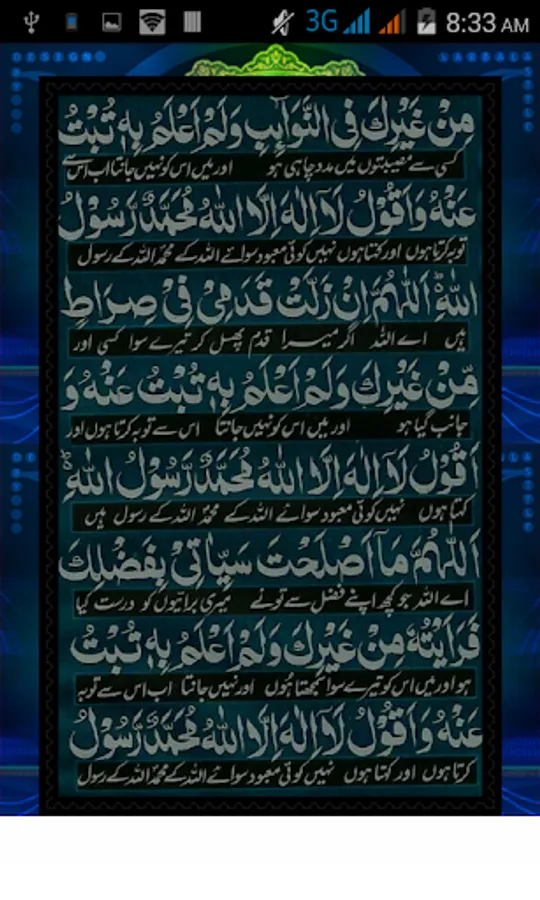 3G 8:33 AM
DESIGN
مِنْ غَيْرِكَ فِى النَّوَآئِبِ وَلَمْ اَعْلَمْ بِهٖ تُبْتُ
کسی سے مصیبتوں میں مدد چاہی ہو اور میں اس کو نہیں جانتا اب اس سے
عَنْهُ وَاَقُوْلُ لَآ اِلٰهَ اِلَّا اللّٰهُ مُحَمَّدٌ رَّسُوْلُ
توبہ کرتا ہوں اور کہتا ہوں نہیں کوئی معبود سوائے اللہ کے محمدؐ اللہ کے رسول
اللّٰهِؕ اَللّٰهُمَّ اِنْ زَلَّتْ قَدَمِىْ فِىْ صِرَاطٍ
ہیں اے اللہ اگر میرا قدم پھسل کر تیرے سوا کسی اور
مِّنْ غَيْرِكَ وَلَمْ اَعْلَمْ بِهٖ تُبْتُ عَنْهُ وَ
جانب گیا ہو اور میں اس کو نہیں جانتا اس سے توبہ کرتا ہوں اور
اَقُوْلُ لَآ اِلٰهَ اِلَّا اللّٰهُ مُحَمَّدٌ رَّسُوْلُ اللّٰهِؕ
کہتا ہوں نہیں کوئی معبود سوائے اللہ کے محمدؐ اللہ کے رسول ہیں
اَللّٰهُمَّ مَآ اَصْلَحْتَ سَيِّاٰتِىْ بِفَضْلِكَ
اے اللہ جو کچھ اپنے فضل سے تونے میری برائیوں کو درست کیا
فَرَاَيْتُهٗ مِنْ غَيْرِكَ وَلَمْ اَعْلَمْ بِهٖ تُبْتُ
ہو اور میں اس کو تیرے سوا سمجھتا ہوں اور نہیں جانتا اب اس سے توبہ
عَنْهُ وَاَقُوْلُ لَآ اِلٰهَ اِلَّا اللّٰهُ مُحَمَّدٌ رَّسُوْلُ
کرتا ہوں اور کہتا ہوں نہیں کوئی معبود سوائے اللہ کے محمدؐ اللہ کے رسول